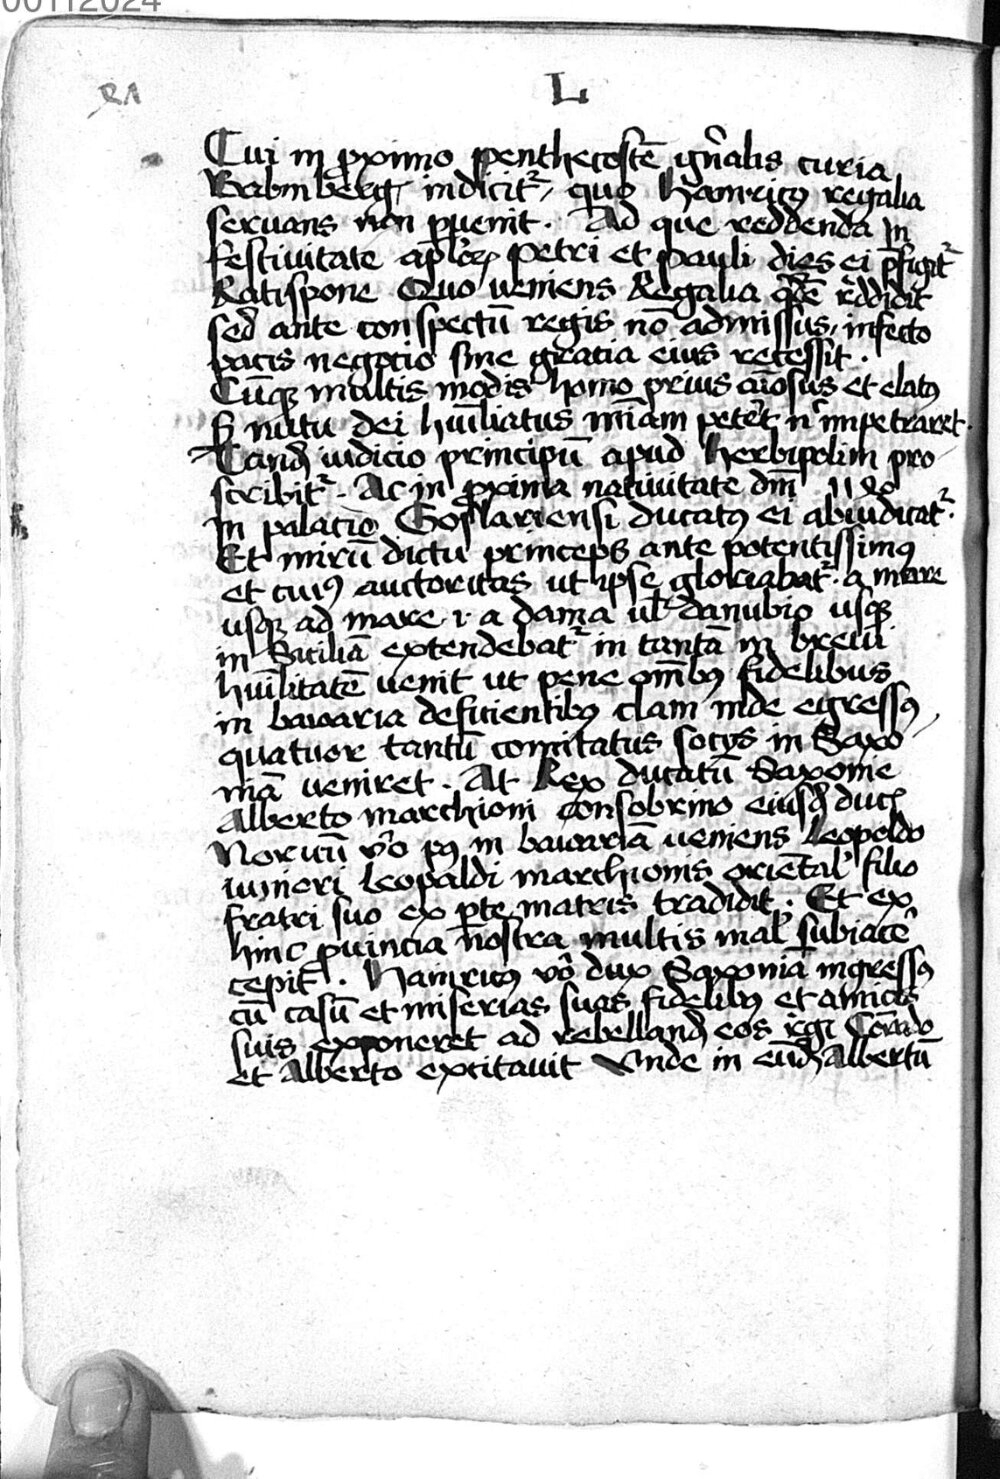 00112024
R1
L
Cui in pximo penthecostē gn̄alis curia
Babinberg indicitr, quo hainricꝰ regalia
seruans non puenit. Ad que reddenda in
festiuitate aplōꝝ petri et pauli dies ei pfigitr
Ratispone Quo ueniens Regalia qdē rddidit
sed ante conspectū regis nō admissus, infecto
pacis negotio sine gratia eius recessit.
Cūqꝫ multis modis homo prius aīosus et elatꝰ
nutu dei hūiliatus mīam petēt nc̄ impetraret.
Tandē iudicio principū apud herbipolim pro
scribitr. Ac in pxima natiuitate dm̄
in palacio Goslariensi ducatꝰ ei abiudicatr.
Et mirū dictu princeps ante potentissimꝰ
et cuiꝰ auctoritas ut ipse gloriabatr. a mare
usqꝫ ad mare .i. a dama ul danubio usqꝫ
in Siciliā extendebatr in tantā in breui
hūilitatē uenit ut pene om̄ibꝰ fidelibus
in bawaria deficientibꝰ clam inde egressꝰ,
quatuor tantū comitatus socijs in Saxo
niā ueniret. At Rex ducatū Saxonie
Alberto marchioni consobrino eiusdē ducꝭ
Noricū vō pꝰ in bawariā ueniens Leopoldo
iuniori Leopaldi marchionis oriētal filio
fratri suo ex pte matris tradidit. Et ex
hinc puincia nostra multis mal subiacē
cepit. Hainricꝰ vō dux Saxoniā ingressꝰ
cū casū et miserias suas fidelibꝰ et amicis
suis exponeret ad rebellandū eos rgi Cōrado
et Alberto excitauit Vnde in eūdē Albertū